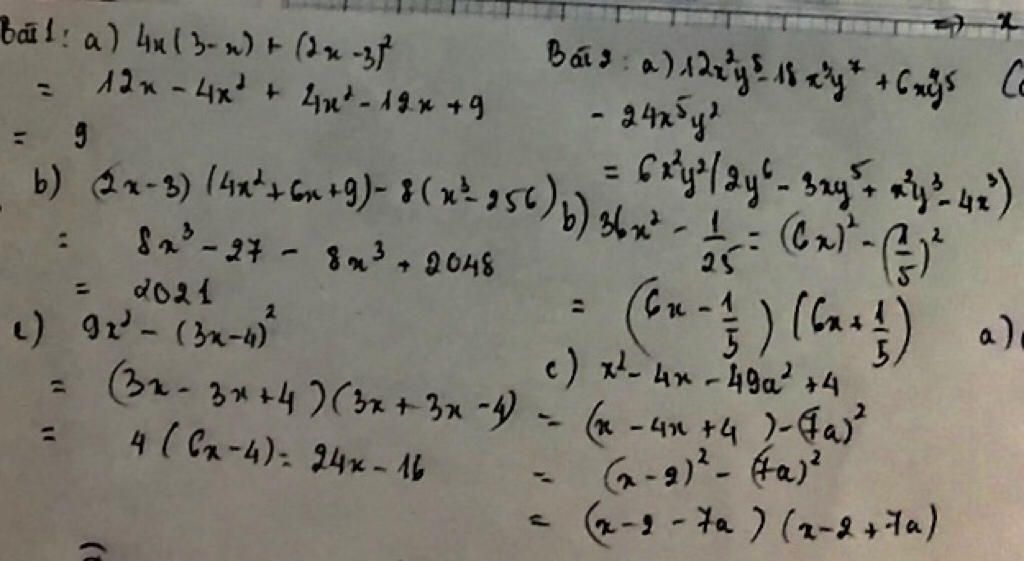 Bài 1: a) 4x(3-x) + (2x-3)²
= 12x - 4x² + 4x² - 12x + 9
= 9
b) (2x-3)(4x²+6x+9) - 8(x³-256)
= 8x³ - 27 - 8x³ + 2048
= 2021
c) 9x² - (3x-4)²
= (3x - 3x+4)(3x+3x-4)
= 4(6x-4) = 24x - 16
⇒ x
Bài 2: a) 12x²y⁸ - 18x³y⁷ + 6x⁴y⁵
- 24x⁵y²
= 6x²y²(2y⁶ - 3xy⁵ + x²y³ - 4x³)
b) 36x² - 1/25 = (6x)² - (1/5)²
= (6x - 1/5)(6x + 1/5)
c) x² - 4x - 49a² + 4
= (x - 4x + 4) - (7a)²
= (x-2)² - (7a)²
= (x-2-7a)(x-2+7a)
a)